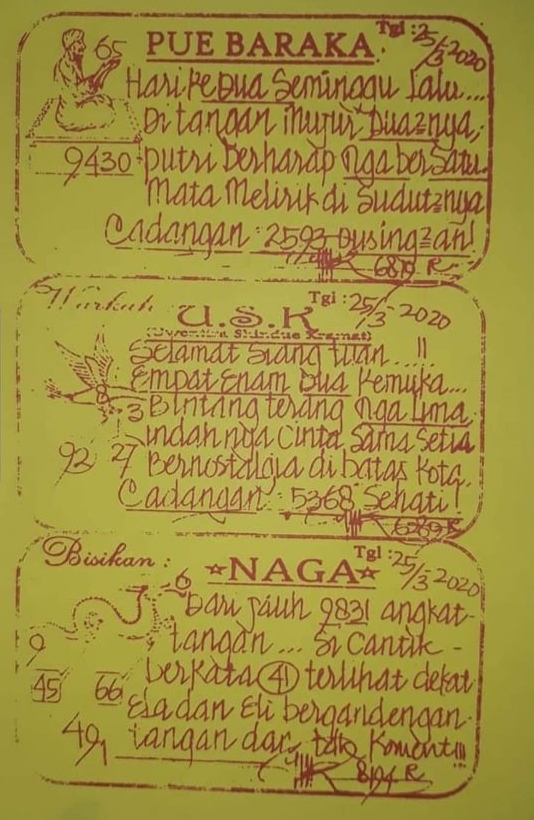 65 PUE BARAKA Tgl : 25/3-2020
Hari Kedua Seminggu Lalu...
Di tangan Mujur Dua2nya,
9430 putri berharap nga berSatu.
Mata Melirik di Sudut2nya
Cadangan : 2593 Dusing2an!
6879 R
Warkah U.S.K Tgl : 25/3-2020
Selamat Siang tuan...!!
Empat Enam Dua Kemuka...
8 3 Bintang terang nga Lima
indah nya Cinta Sama Setia
92 27 Bernostalgia di batas Kota.
Cadangan : 5368 Sehati!
6589 R
Bisikan : ☆NAGA☆ Tgl : 25/3 2020
6 Dari jauh 9831 angkat
9 tangan ... Si Cantik -
45 66 berkata 41 terlihat dekat
Ela dan Eli bergandengan
49, tangan dan tdk Koment!!!
8194 R